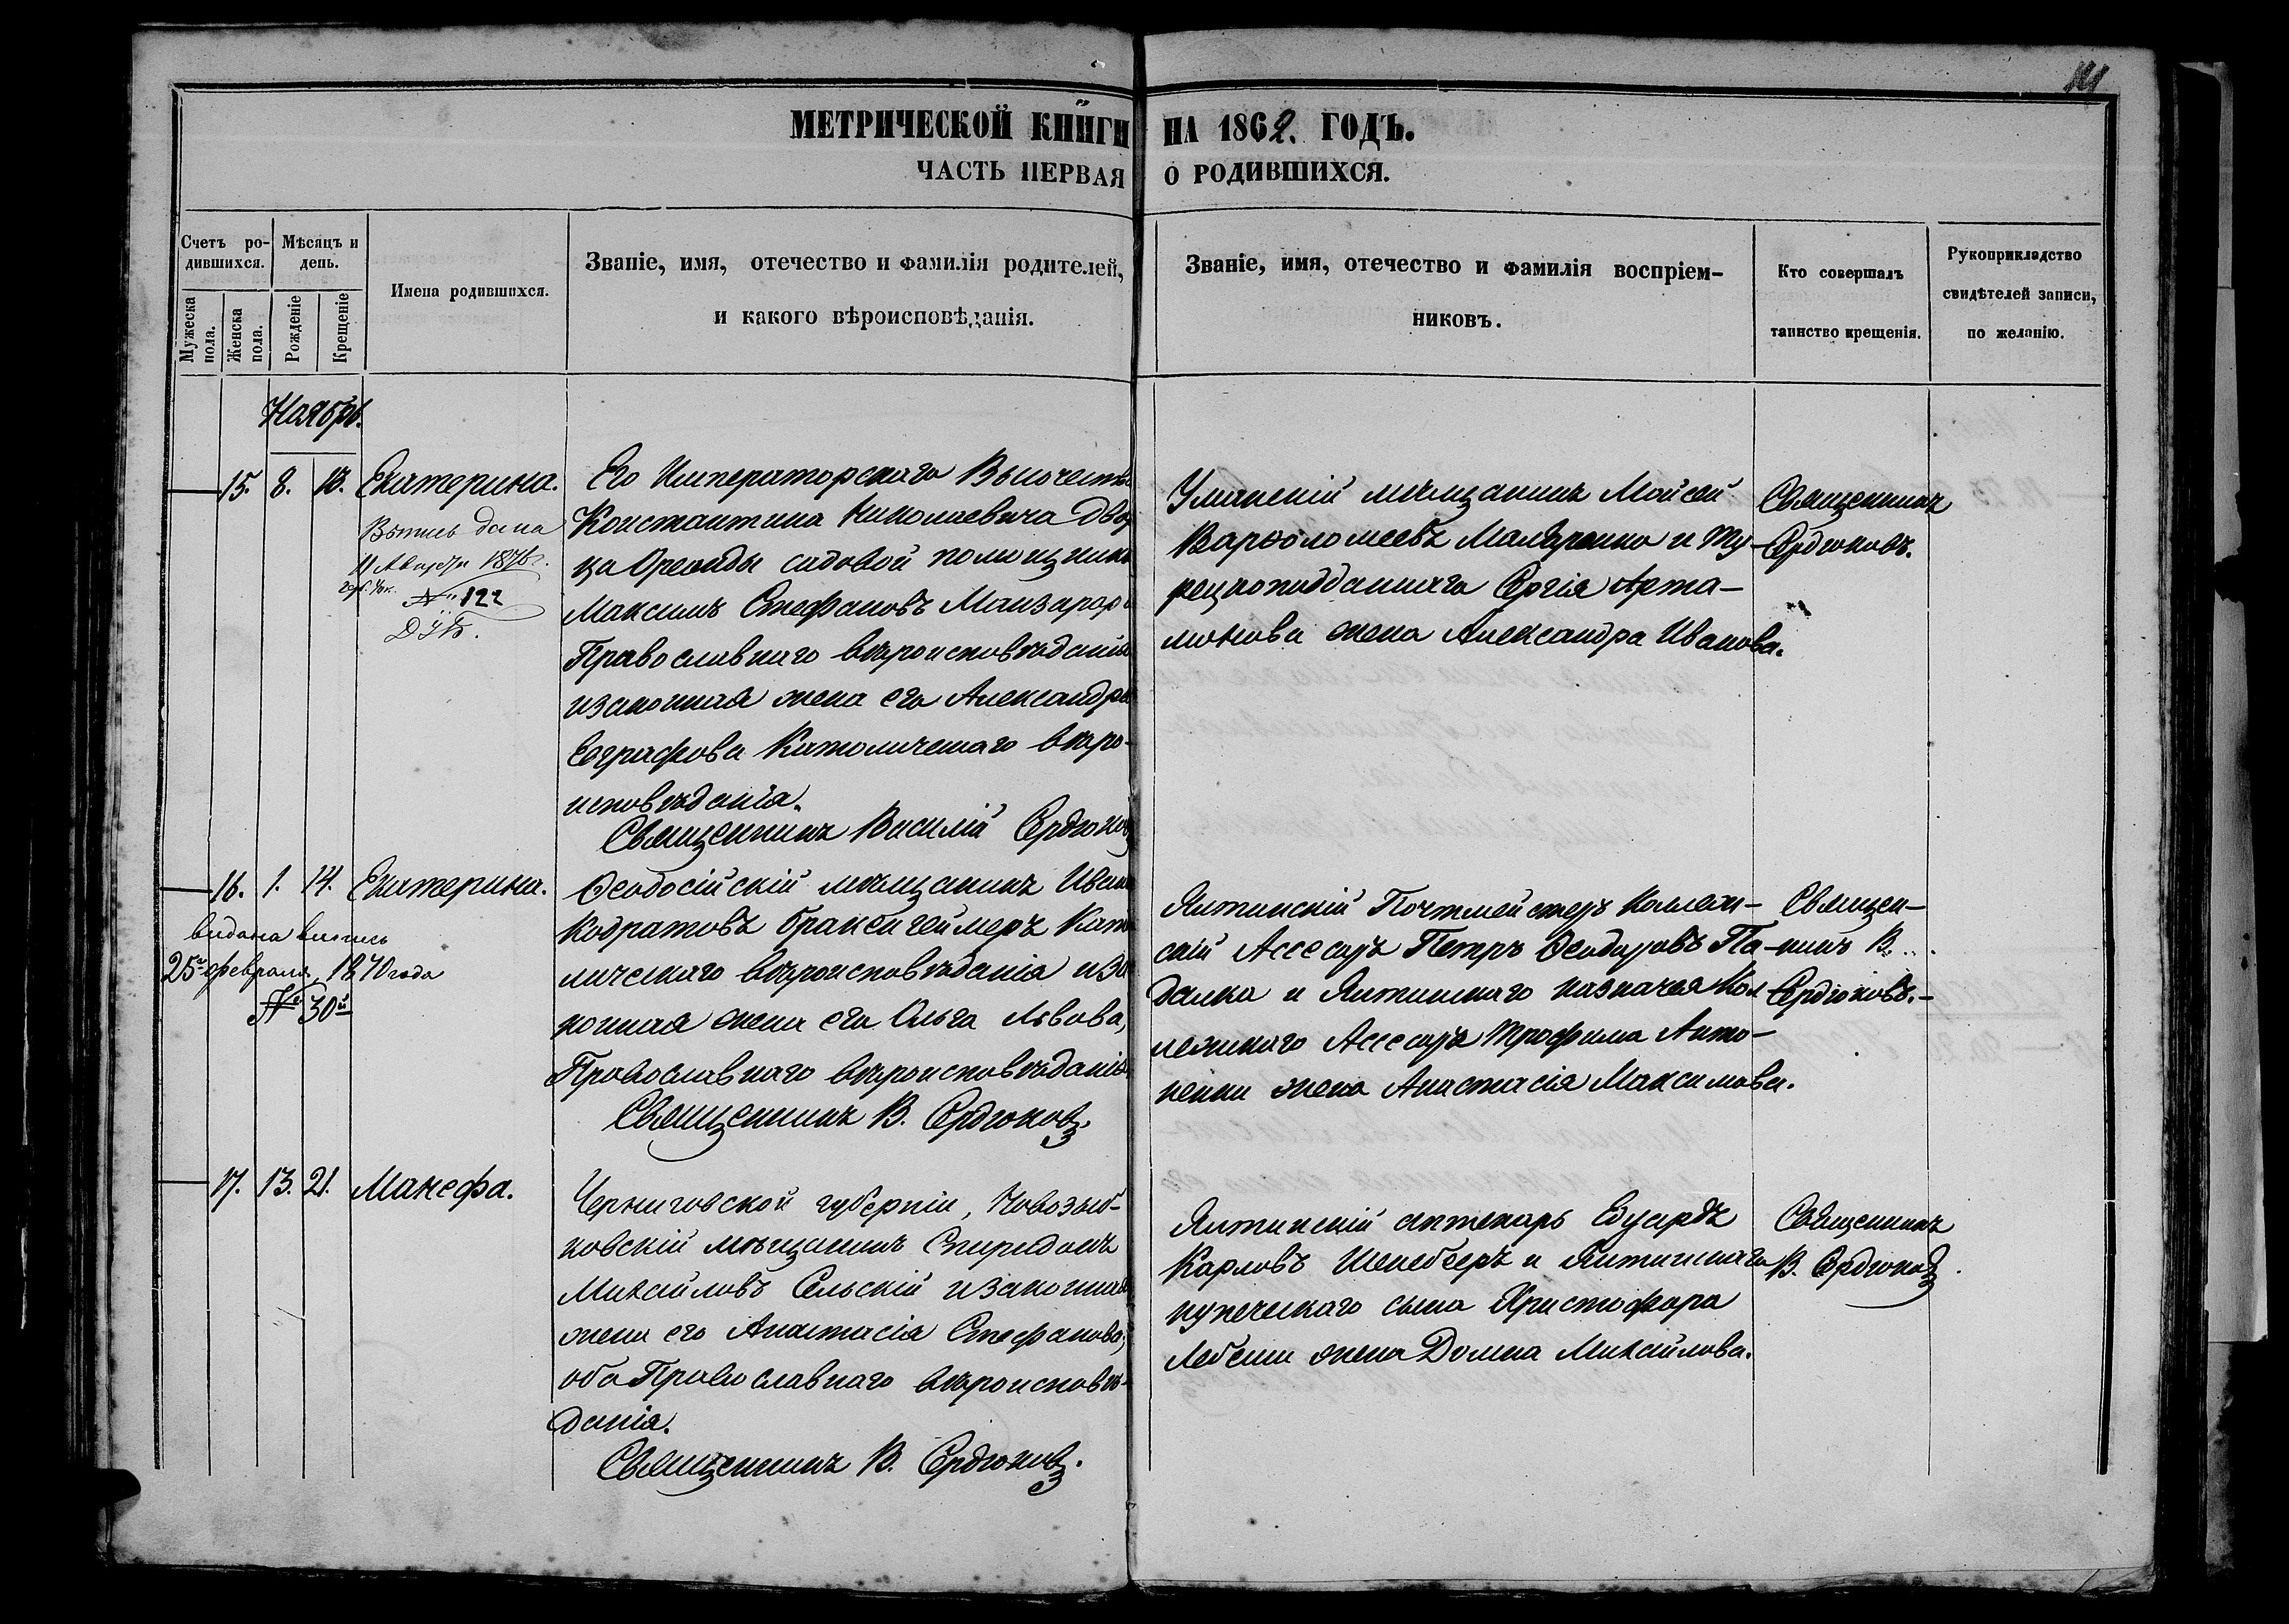 МЕТРИЧЕСКОЙ КНИГИ НА 1862. ГОДЪ.
ЧАСТЬ ПЕРВАЯ О РОДИВШИХСЯ.
Счетъ ро-
дившихся.
Мѣсяцъ и
день.
Мужеска
пола.
Женска
пола.
Рожденіе
Крещеніе
Имена родившихся.
Званіе, имя, отечество и фамилія родителей,
и какого вѣроисповѣданія.
Званіе, имя, отечество и фамилія воспріем-
никовъ.
Кто совершалъ
таинство крещенія.
Рукоприкладство
свидѣтелей записи,
по желанію.
Ноябрь.
15. 8. 18. Екатерина.
Выпись дана
11 1876г.
№ 122
Его Императорскаго Высочества
Константина Николаевича Двор
ца Ореанды садовой помощникъ
Максимъ Стефановъ
Православнаго вѣроисповѣданія
изаконная жена его Александра
Евграфова Католическаго вѣро-
исповѣданія.
Священникъ Василій Сердюковъ
Уманскій мѣщанинъ Мойсей
Варѳоломеевъ Маляренко и Ту-
рецкоподданнаго Сергія Арта-
монова жена Александра Иванова.
Священникъ
Сердюковъ.
16. 1. 14. Екатерина.
видана выпись
25го февраля 1870 года
№ 30й
Ѳеодосійскій мѣщанинъ Иванъ
Кодратовъ Католическаго вѣроисповѣданія изa
конная жена его Ольга Львова,
Православнаго вѣроисповѣданія.
Священникъ В. Сердюковъ.
Ялтинскій Почтмейстеръ Коллеж-
скій Ассесоръ Петръ Ѳеодоровъ Па-
далка и Ялтинскаго казначея Кол-
лежскаго Ассесора Трофима Анто-
ненки жена Анастасія Максимова.
Священ-
никъ В.
Сердюковъ.-
17. 13. 21. Манефа.
Черниговской губерніи, Новозыб-
ковскій мѣщанинъ Спиридонъ
Михайловъ Сельскій изаконная
жена его Анастасія Стефанова,
оба Православнаго вѣроисповѣ-
данія.
Священникъ В. Сердюковъ.
Ялтинскій аптекарь Едуардъ
Карловъ и Ялтинскаго
купеческаго сына Христофора
жена Домна Михайлова.
Священникъ
В. Сердюковъ